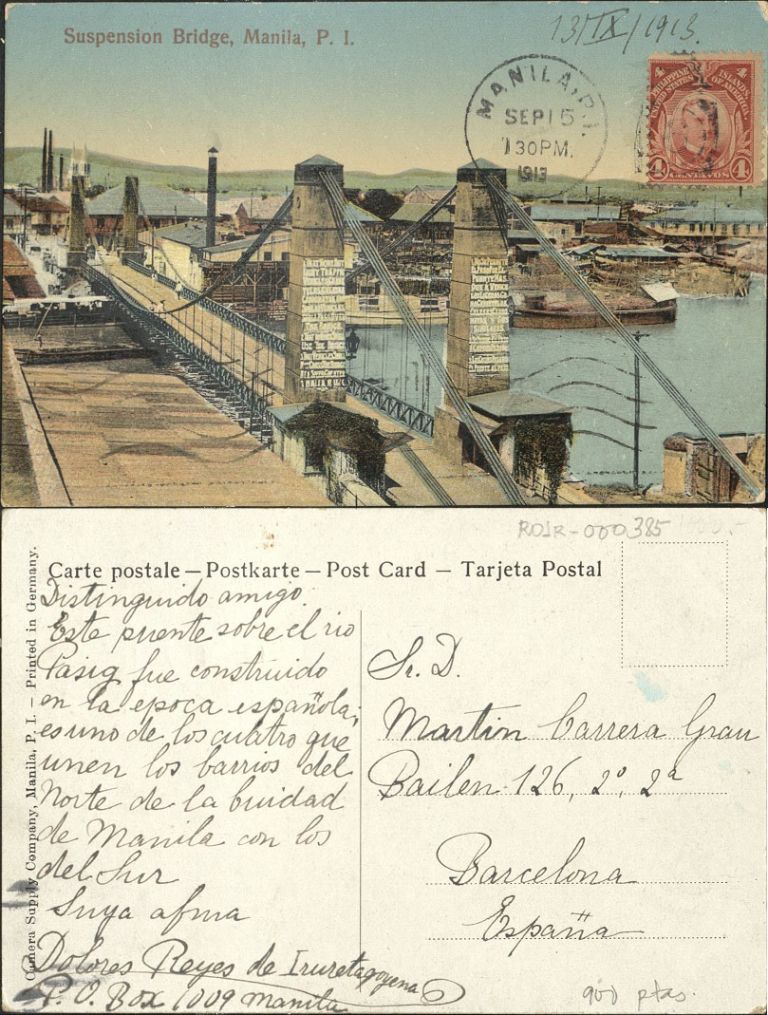 Suspension Bridge, Manila, P. I.
13/IX/1913.
MANILA, P.I.
SEP 15
7 30 PM.
1913
4 4
PHILIPPINE ISLANDS
UNITED STATES OF AMERICA
4 CENTAVOS 4
RDJR-000385
Carte postale — Postkarte — Post Card — Tarjeta Postal
Camera Supply Company, Manila, P. I. — Printed in Germany.
Distinguido amigo.
Este puente sobre el rio
Pasig fue construido
en la epoca española;
es uno de los cuatro que
unen los barrios del
Norte de la Ciudad
de Manila con los
del Sur
Suya afma
Dolores Reyes de Iruretagoyena
P. O. Box 1009 Manila
Sr. D.
Martin Carrera Grau
Bailen 126, 2º, 2ª
Barcelona
España
900 ptas.